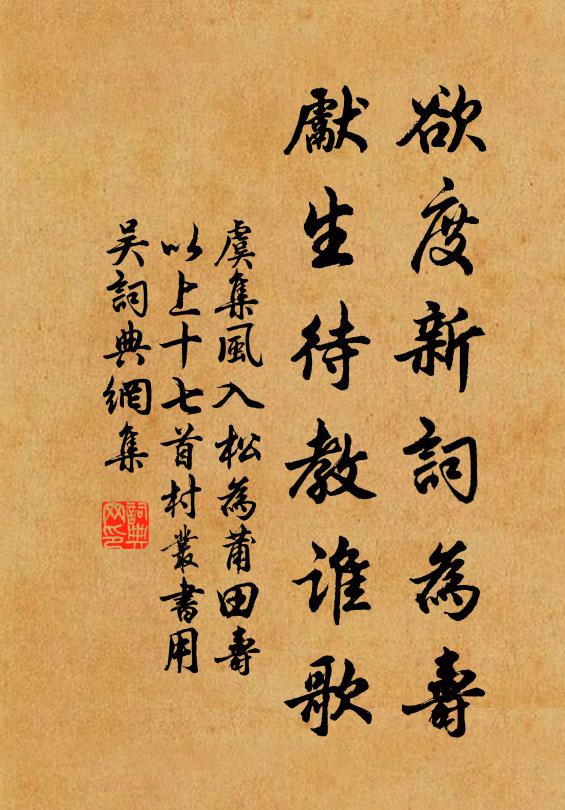 欲度新詞為壽
獻生待教誰歌
虞集風入松為莆田壽
以上十七首村叢書用
吴詞典網集
詞典
网印